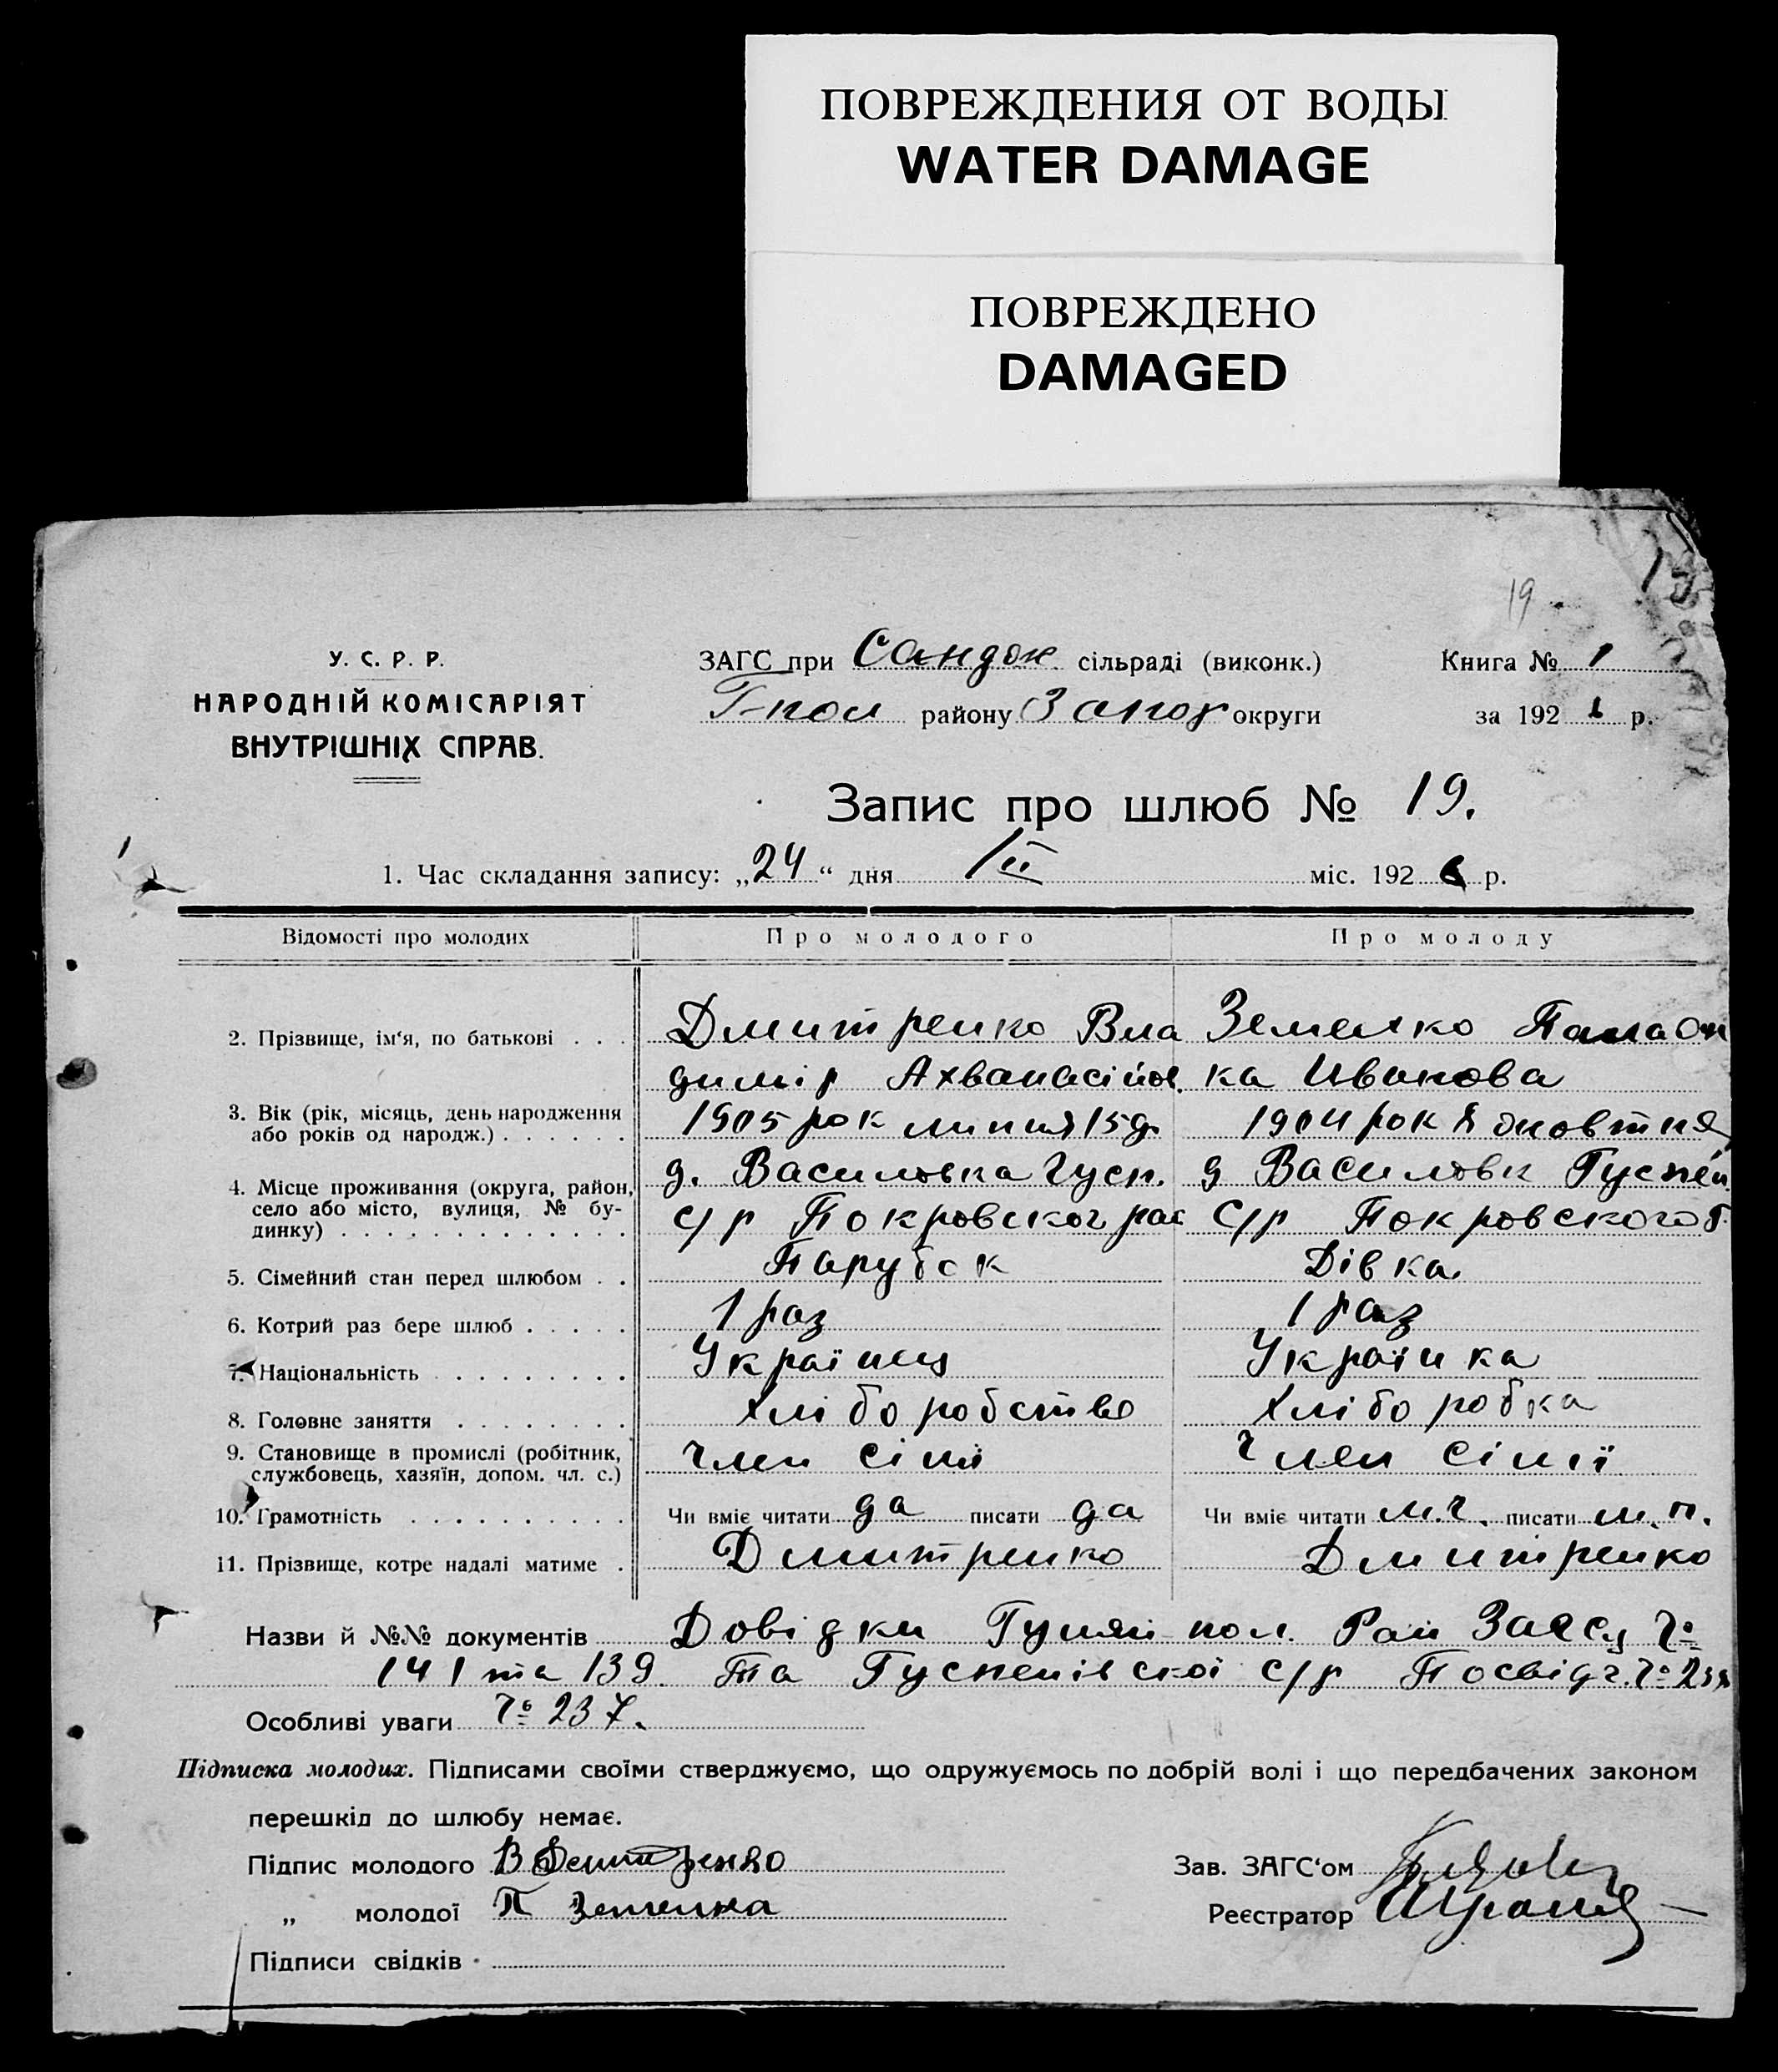 ПОВРЕЖДЕНИЯ ОТ ВОДЫ
WATER DAMAGE
ПОВРЕЖДЕНО
DAMAGED
19
У. С. Р. Р.
НАРОДНІЙ КОМІСАРІЯТ
ВНУТРІШНІХ СПРАВ.
ЗАГС при Сандок сільраді (виконк.)
Г-пол району Запор округи
Книга № 1
за 192 6 р.
Запис про шлюб № 19.
1. Час складання запису: „24“ дня міс. 192 6 р.
Відомості про молодих Про молодого Про молоду
2. Прізвище, ім‘я, по батькові . . . Дмитренко Вла Земелко
димір Ахванасійов. ка Ивакова
3. Вік (рік, місяць, день народження
або років од народж.) . . . . . . 1905 рок липня 15 д. 1904 рок жовтня
4. Місце проживання (округа, район,
село або місто, вулиця, № бу-
динку) . . . . . . . . . . . . .
д. Василовка Гусп. д Василовк Гуспен
с/р Покровског рас с/р Покровского
5. Сімейний стан перед шлюбом . . Парубок Дівка
6. Котрий раз бере шлюб . . . . . 1 раз 1 раз
7. Національність . . . . . . . . Українец Українка
8. Головне заняття . . . . . . . . Хліборобство Хліборобка
9. Становище в промислі (робітник,
службовець, хазяїн, допом. чл. с.) член сімї член сімї
10. Грамотність . . . . . . . . . . Чи вміє читати да писати да Чи вміє читати м.ч. писати м.п.
11. Прізвище, котре надалі матиме . Дмитренко Дмитренко
Назви й №№ документів Довідки Гуляй-пол. Рай Загсу №
141 та 139. та Гуспенівскої с/р Посвідч. №
Особливі уваги № 237.
Підписка молодих. Підписами своїми стверджуємо, що одружуємось по добрій волі і що передбачених законом
перешкід до шлюбу немає.
Підпис молодого В Дмитренко
Зав. ЗАГС‘ом
„ молодої П Земелка
Реєстратор
Підписи свідків